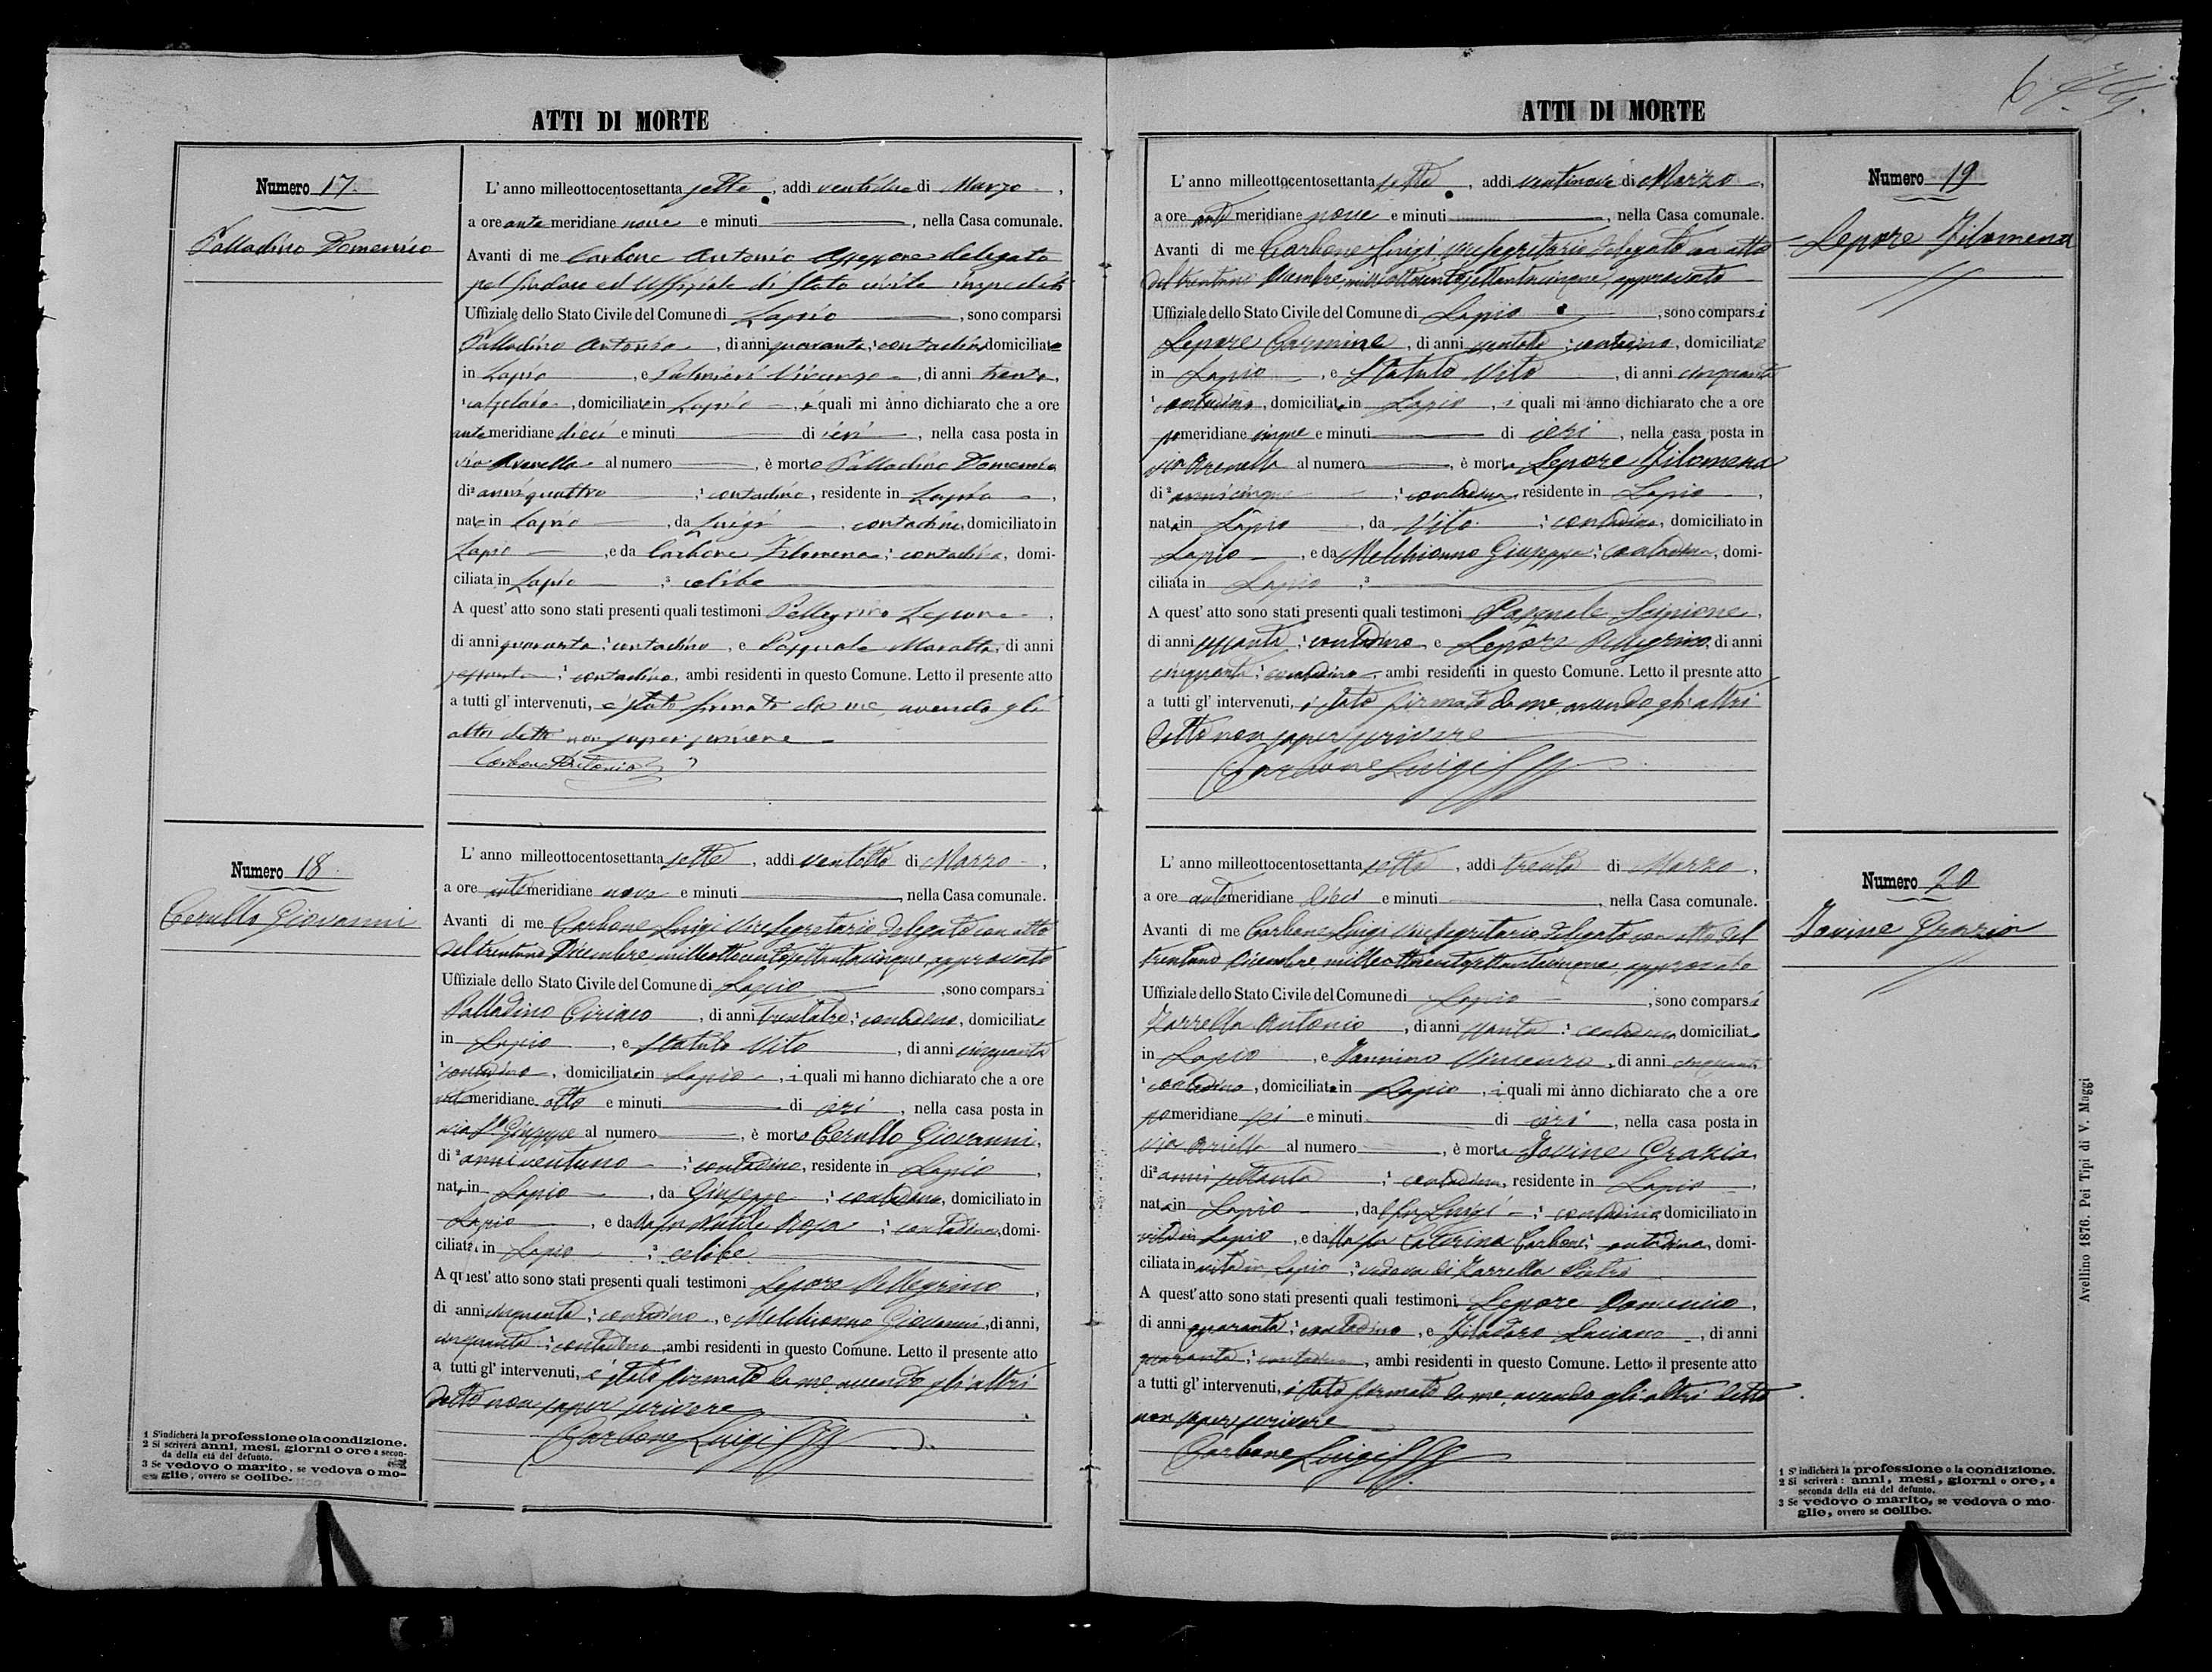 ATTI DI MORTE
Numero 17.
Palladino Domenico
L' anno milleottocentosettanta sette, addì ventidue di Marzo,
a ore ante meridiane nove e minuti , nella Casa comunale.
Avanti di me Carbone Antonio Assessore delegato
pel Sindaco ed Uffiziale di Stato civile impedito
Uffiziale dello Stato Civile del Comune di Lapio , sono comparsi
Palladino Antonio , di anni quaranta, ¹ contadino domiciliato
in Lapio , e Palmieri Vincenzo , di anni trenta,
¹ calzolaio , domiciliato in Lapio , i quali mi ànno dichiarato che a ore
ante meridiane dieci e minuti di ieri , nella casa posta in
via Arenella al numero , è morto Palladino Domenico
di ² anni quattro , ¹ contadino, residente in Lapio ,
nato in Lapio , da Luigi , contadino, domiciliato in
Lapio , e da Carbone Filomena, ¹ contadina, domi-
ciliata in Lapio , ³ celibe
A quest' atto sono stati presenti quali testimoni Pellegrino Lepore ,
di anni quaranta, ¹ contadino , e Pasquale Maratta, di anni
sessanta ¹ contadino, ambi residenti in questo Comune. Letto il presente atto
a tutti gl' intervenuti, è stato firmato da me, avendo gli
altri detto non saper scrivere
Carbone Antonio
Numero 18.
Cerullo Giovanni
L' anno milleottocentosettanta sette , addì ventotto di Marzo ,
a ore ante meridiane nove e minuti , nella Casa comunale.
Avanti di me Carbone Luigi Vicesegretario delegato con atto
del trentuno Dicembre milleottocentosettantacinque, approvato
Uffiziale dello Stato Civile del Comune di Lapio , sono comparsi
Palladino Ciriaco , di anni trentatre, ¹ contadino, domiciliato
in Lapio , e Statuto Vito , di anni cinquanta
¹ contadino , domiciliato in Lapio , i quali mi hanno dichiarato che a ore
ante meridiane otto e minuti di ieri , nella casa posta in
via S. Giuseppe al numero , è morto Cerullo Giovanni,
di ² anni ventuno , ¹ contadino, residente in Lapio ,
nato in Lapio , da Giuseppe , ¹ contadino, domiciliato in
Lapio , e da Rosa , ¹ contadina, domi-
ciliata in Lapio , ³ celibe
A quest' atto sono stati presenti quali testimoni Lepore Pellegrino ,
di anni cinquanta, ¹ contadino , e Melchionno Giovanni, di anni,
cinquanta, ¹ contadino , ambi residenti in questo Comune. Letto il presente atto
a tutti gl' intervenuti, è stato firmato da me, avendo gli altri
detto non saper scrivere
Carbone Luigi
1 S'indicherà la professione o la condizione.
2 Si scriverà anni, mesi, giorni o ore a secon-
da della età del defunto.
3 Se vedovo o marito, se vedova o mo-
glie, ovvero se celibe.
6
ATTI DI MORTE
Numero 19
Lepore Filomena
L' anno milleottocentosettanta sette , addì ventinove di Marzo ,
a ore ante meridiane nove e minuti , nella Casa comunale.
Avanti di me Carbone Luigi, Vicesegretario delegato con atto
del trentuno Dicembre, milleottocentosettantacinque, approvato
Uffiziale dello Stato Civile del Comune di Lapio , sono comparsi
Lepore Carmine , di anni ventotto , ¹ contadino, domiciliato
in Lapio , e Statuto Vito , di anni cinquanta
¹ contadino, domiciliato in Lapio , i quali mi ànno dichiarato che a ore
pomeridiane cinque e minuti di ieri , nella casa posta in
via Arenella al numero , è morta Lepore Filomena
di ² anni cinque , ¹ contadina, residente in Lapio ,
nata in Lapio , da Vito , ¹ contadino, domiciliato in
Lapio , e da Melchionno Giuseppa, ¹ contadina, domi-
ciliata in Lapio , ³
A quest' atto sono stati presenti quali testimoni Pasquale Scipione ,
di anni sessanta, ¹ contadino e Lepore Pellegrino, di anni
cinquanta, ¹ contadino , ambi residenti in questo Comune. Letto il presente atto
a tutti gl' intervenuti, è stato firmato da me, avendo gli altri
detto non saper scrivere
Carbone Luigi
Numero 20
Iovine Grazia
L' anno milleottocentosettanta sette , addì trenta di Marzo ,
a ore ante meridiane dieci e minuti , nella Casa comunale.
Avanti di me Carbone Luigi Vicesegretario delegato con atto del
trentuno Dicembre milleottocentosettantacinque, approvato
Uffiziale dello Stato Civile del Comune di Lapio , sono comparsi
Zarrella Antonio , di anni , ¹ contadino domiciliato
in Lapio , e Iannino Vincenzo , di anni cinquanta
¹ contadino , domiciliato in Lapio , i quali mi ànno dichiarato che a ore
pomeridiane sei e minuti di ieri , nella casa posta in
via Ariella al numero , è morta Iovine Grazia
di ² anni settanta , ¹ contadina, residente in Lapio ,
nata in Lapio , da fu Luigi , ¹ contadino domiciliato in
vita in Lapio , e da Caterina Carbone, ¹ contadina, domi-
ciliata in vita in Lapio , ³ vedova di Zarrella Pietro
A quest' atto sono stati presenti quali testimoni Lepore Domenico ,
di anni quaranta, ¹ contadino , e Filadoro Luciano , di anni
quaranta, ¹ contadino , ambi residenti in questo Comune. Letto il presente atto
a tutti gl' intervenuti, è stato firmato da me, avendo gli altri detto
non saper scrivere
Carbone Luigi
1 S' indicherà la professione o la condizione.
2 Si scriverà: anni, mesi, giorni o ore, a
seconda della età del defunto.
3 Se vedovo o marito, se vedova o mo-
glie, ovvero se celibe.
Avellino 1876. Pei Tipi di V. Maggi